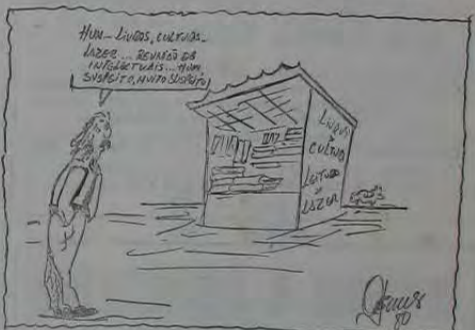 HUM... LIVROS, CULTURA...
LAZER... REUNIÃO DE
INTELECTUAIS... HUM,
SUSPEITO, MUITO SUSPEITO!
LIVROS
É
CULTURA
LEITURA
É
LAZER
80